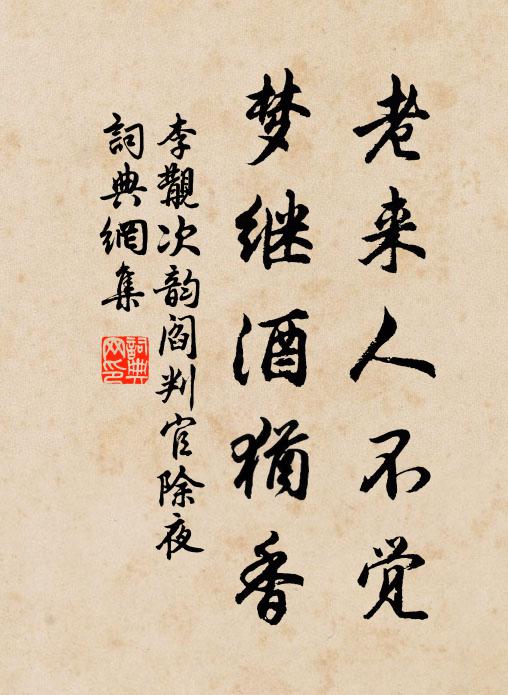 老来人不觉
梦继酒犹香
李觏次韵阎判官除夜
詞典網集
詞典網印